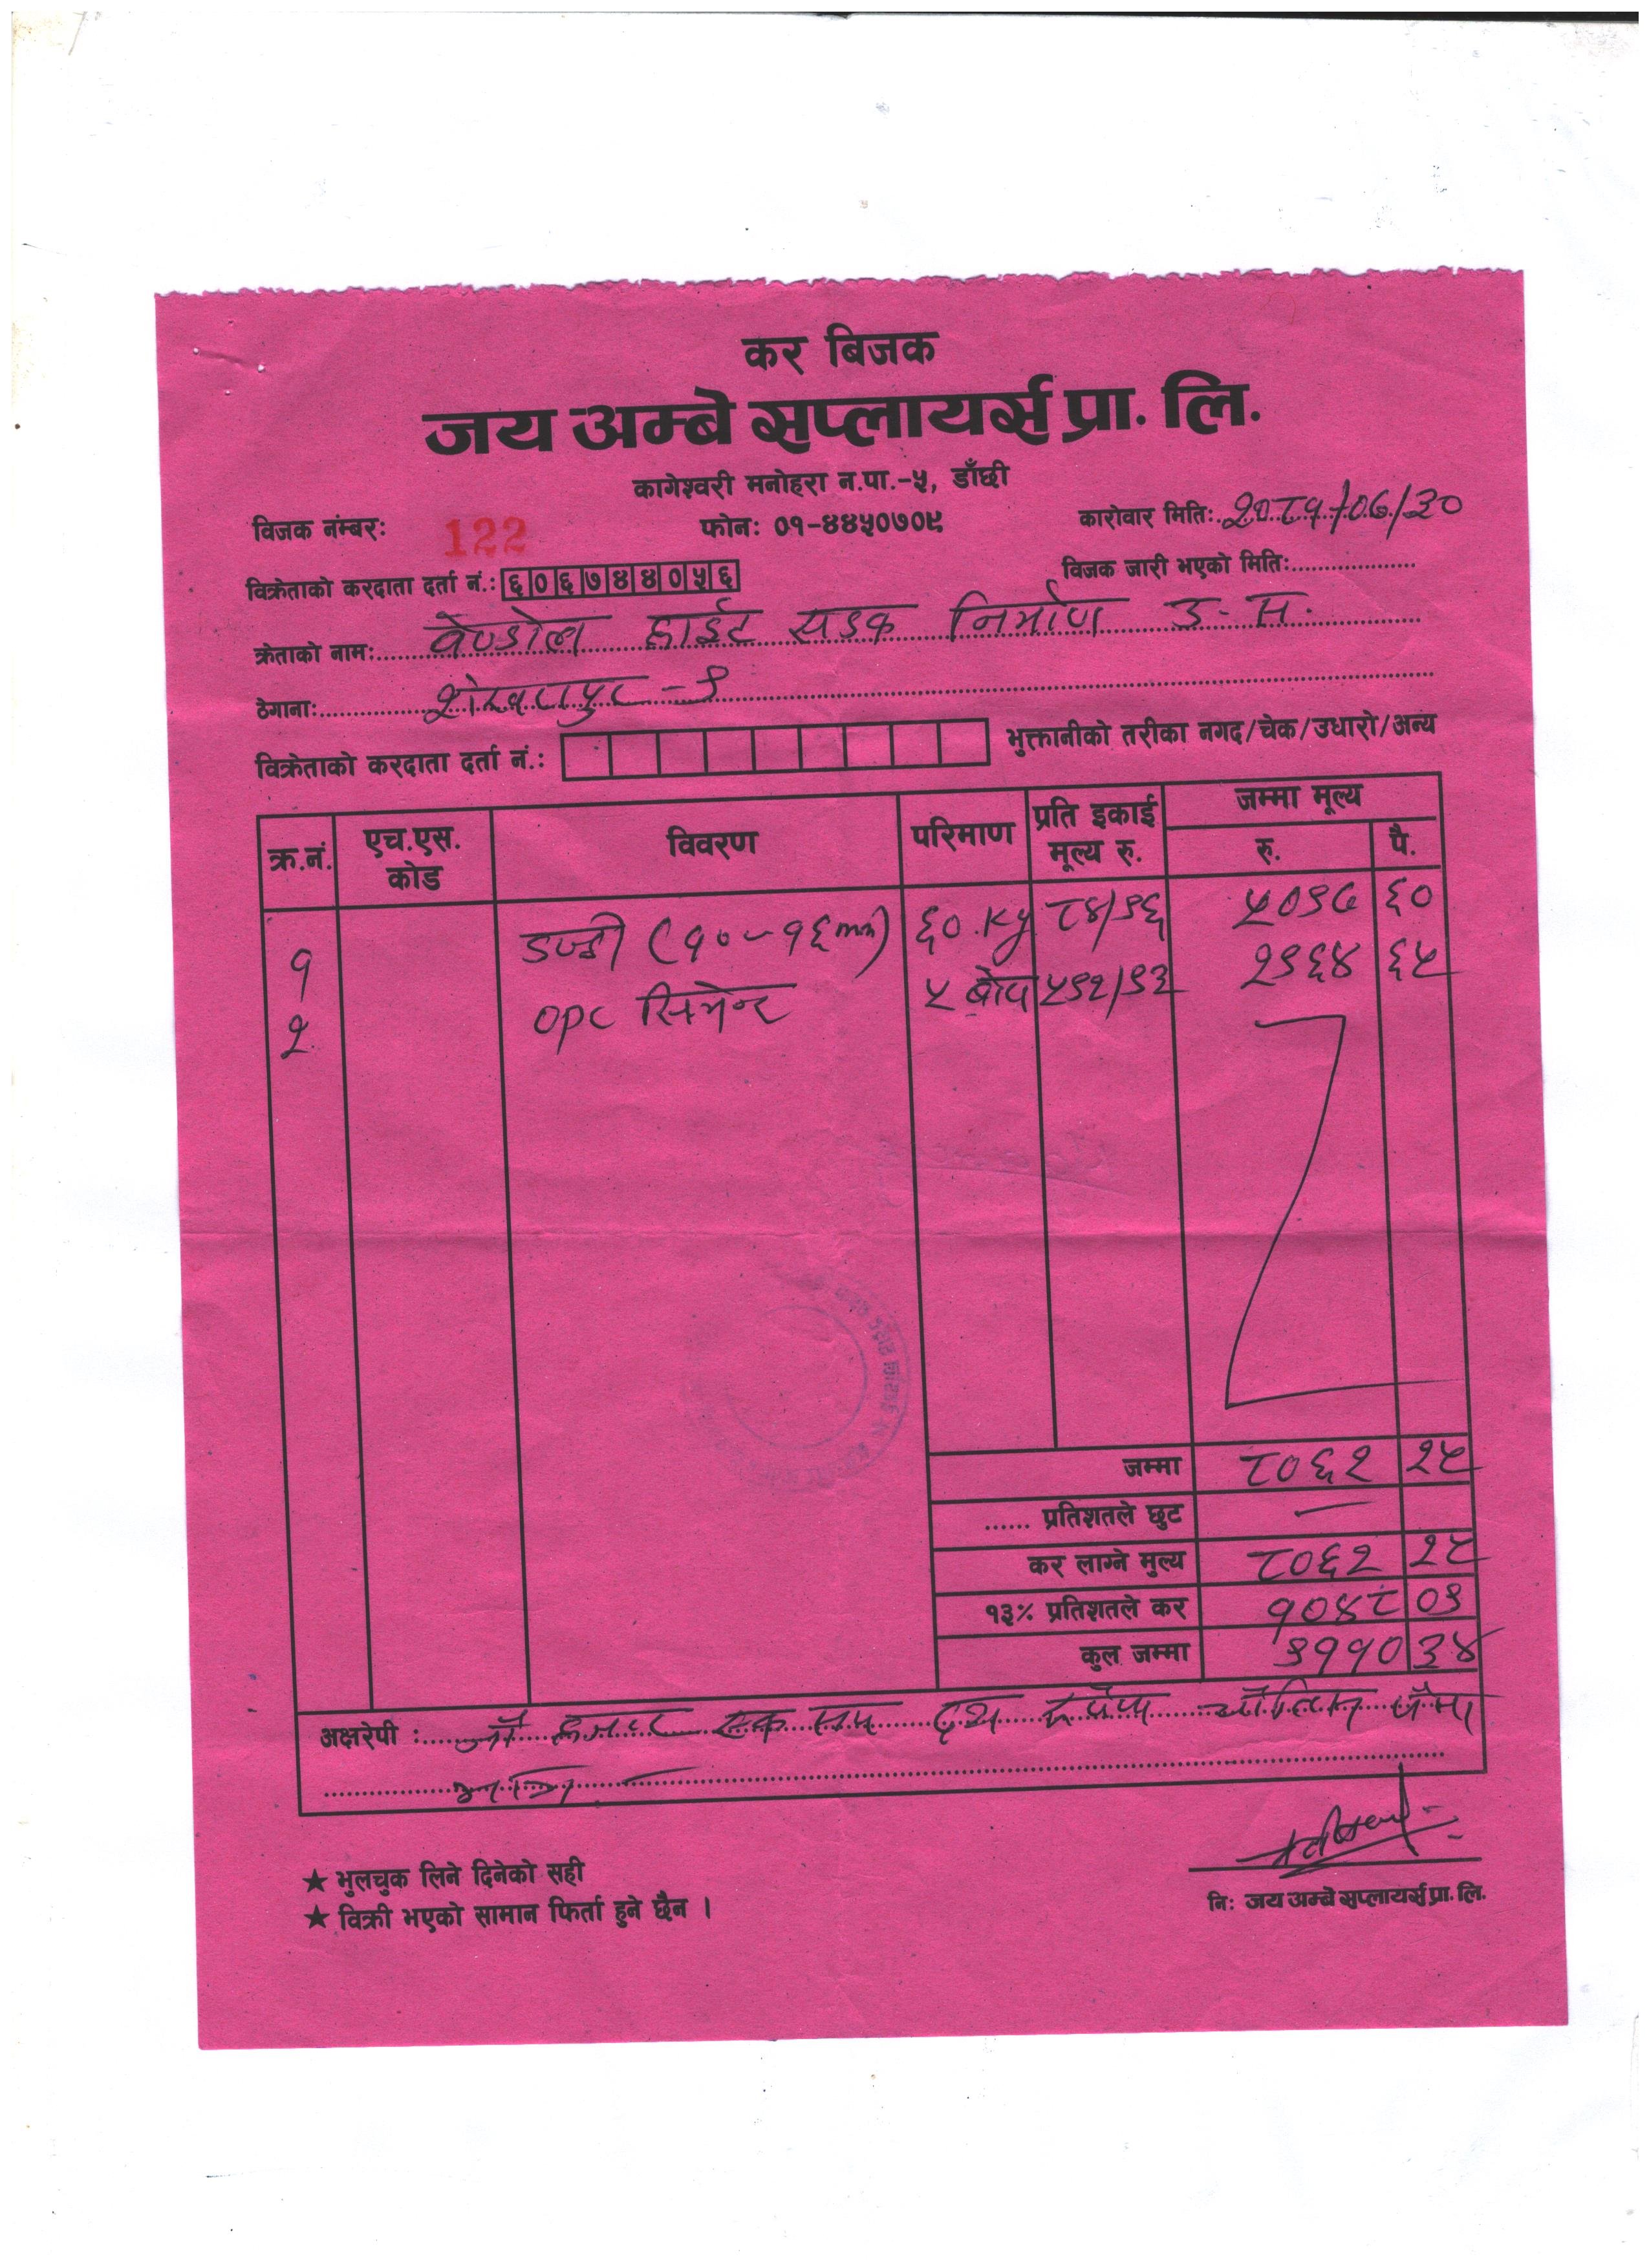 कर बिजक
जय अम्बे सप्लायर्स प्रा. लि.
कागेश्वरी मनोहरा न.पा.-५, डाँछी
विजक नंम्बर: 122 फोन: ०१-४४५०७०९ कारोवार मिति: २०८१/०७/३०
विक्रेताको करदाता दर्ता नं.: ६०६७४४०५६ विजक जारी भएको मिति:
क्रेताको नाम: हाईट सडक निर्माण उ. स.
ठेगाना: - ९
विक्रेताको करदाता दर्ता नं.: भुक्तानीको तरीका नगद/चेक/उधारो/अन्य
क्र.नं. एच.एस. कोड विवरण परिमाण प्रति इकाई मूल्य रु. जम्मा मूल्य रु. पै.
१ डण्डी (१०-१६mm) ६० Kg ८४/९६ ५०९७ ६०
२ opc सिमेन्ट ५ बोरा ५९२/९३ २९६४ ६५
जम्मा ८०६२ २५
...... प्रतिशतले छुट —
कर लाग्ने मुल्य ८०६२ २५
१३% प्रतिशतले कर १०४८ ०९
कुल जम्मा ९११० ३४
अक्षरेपी : नौ हजार एक सय दश रूपैया चौतिस पैसा
मात्र
★ भुलचुक लिने दिनेको सही
★ विक्री भएको सामान फिर्ता हुने छैन ।
नि: जय अम्बे सप्लायर्स प्रा. लि.